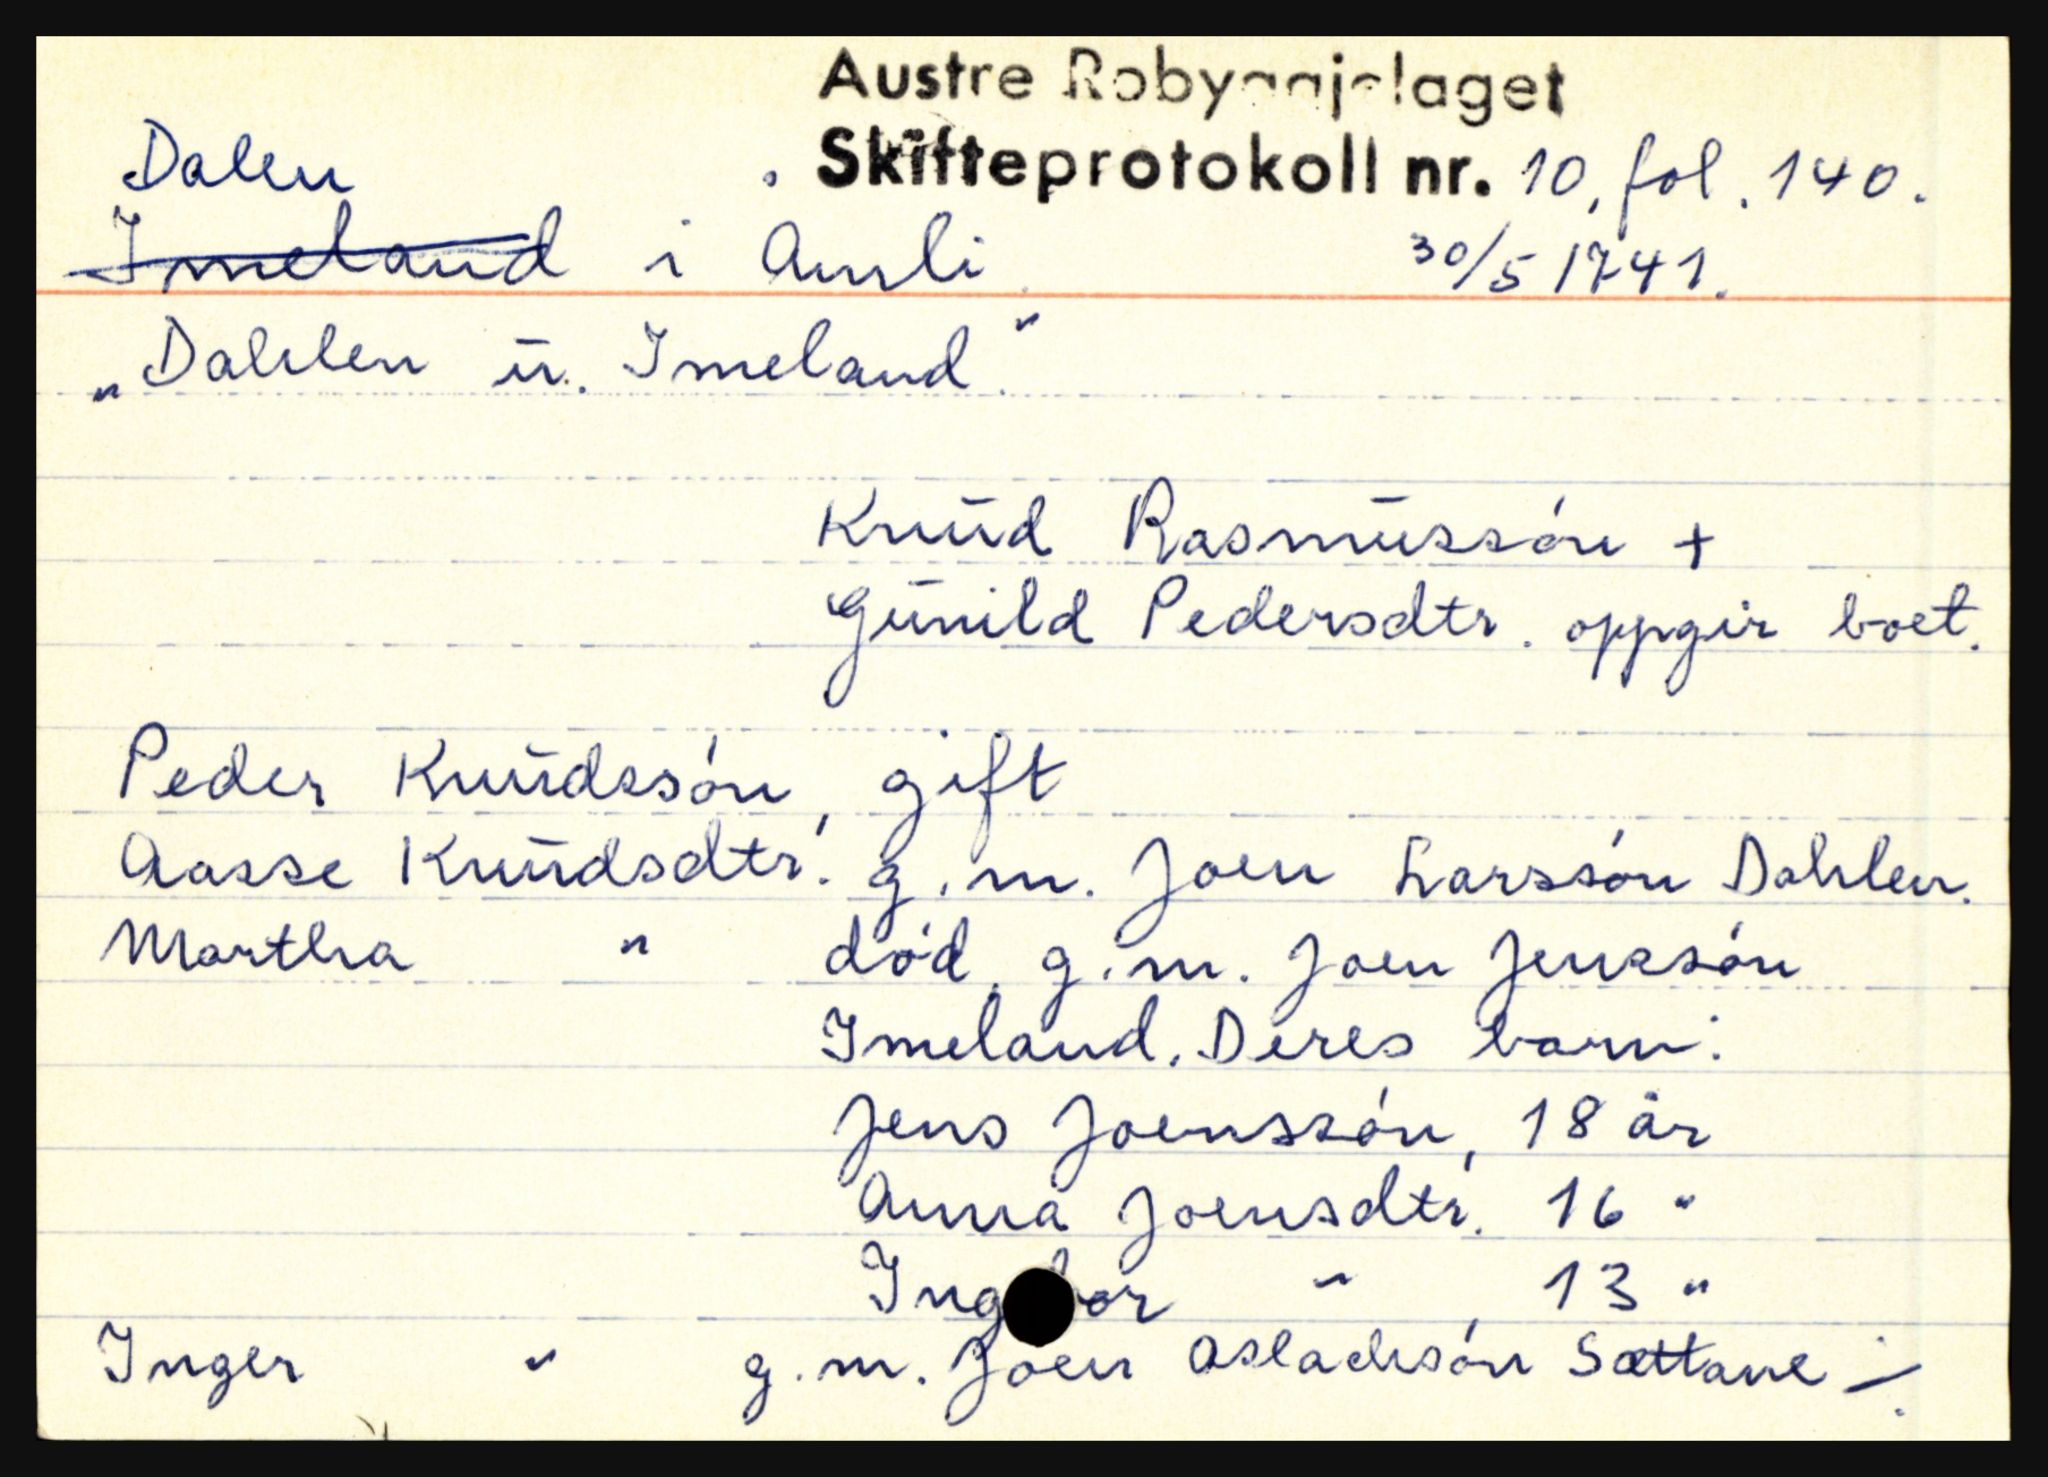 Austre Robyggjelaget
Dalen . Skifteprotokoll nr. 10, fol. 140.
Imeland i Amli 30/5 1741.
„Dahlen ū. Imeland."
Knūd Rasmūssón +
Gūnild Pedersdtr. oppgir boet.
Peder Knūdssón, gift
Aasse Knūdsdtr. g.m. Joen Larssón Dahlen.
Martha " död, g.m. Joen Jenssón
Imeland. Deres barn:
Jens Joenssón, 18 år
Anna Joensdtr. 16 "
Ingebor " 13 "
Inger " g.m. Joen Aslachsón Sættane ./.